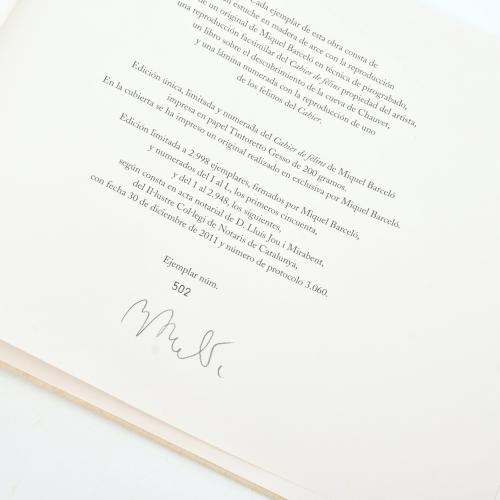 Cada ejemplar de esta obra consta de
un estuche en madera de arce con la reproducción
de un original de Miquel Barceló en técnica de pirograbado,
una reproducción facsimilar del Cahier de félins propiedad del artista,
un libro sobre el descubrimiento de la cueva de Chauvet,
y una lámina numerada con la reproducción de uno
de los felinos del Cahier.
Edición única, limitada y numerada del Cahier de félins de Miquel Barceló
impresa en papel Tintoretto Gesso de 200 gramos.
En la cubierta se ha impreso un original realizado en exclusiva por Miquel Barceló.
Edición limitada a 2.998 ejemplares, firmados por Miquel Barceló,
y numerados del I al L, los primeros cincuenta,
y del 1 al 2.948, los siguientes,
según consta en acta notarial de D. Lluís Jou i Mirabent,
del Il·lustre Col·legi de Notaris de Catalunya,
con fecha 30 de diciembre de 2011 y número de protocolo 3.060.
Ejemplar núm.
502